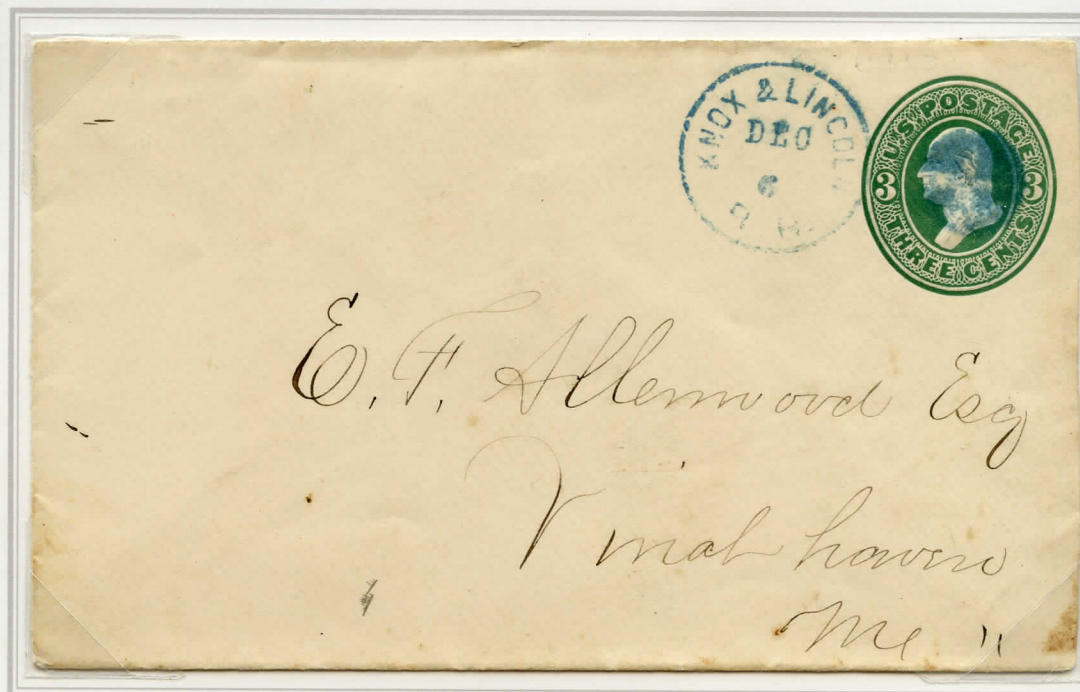 KNOX & LINCOLN
DEC
6
R. R.
U.S. POSTAGE
3 3
THREE CENTS
E. F. Allenwood Esq
Vinal haven
Me "